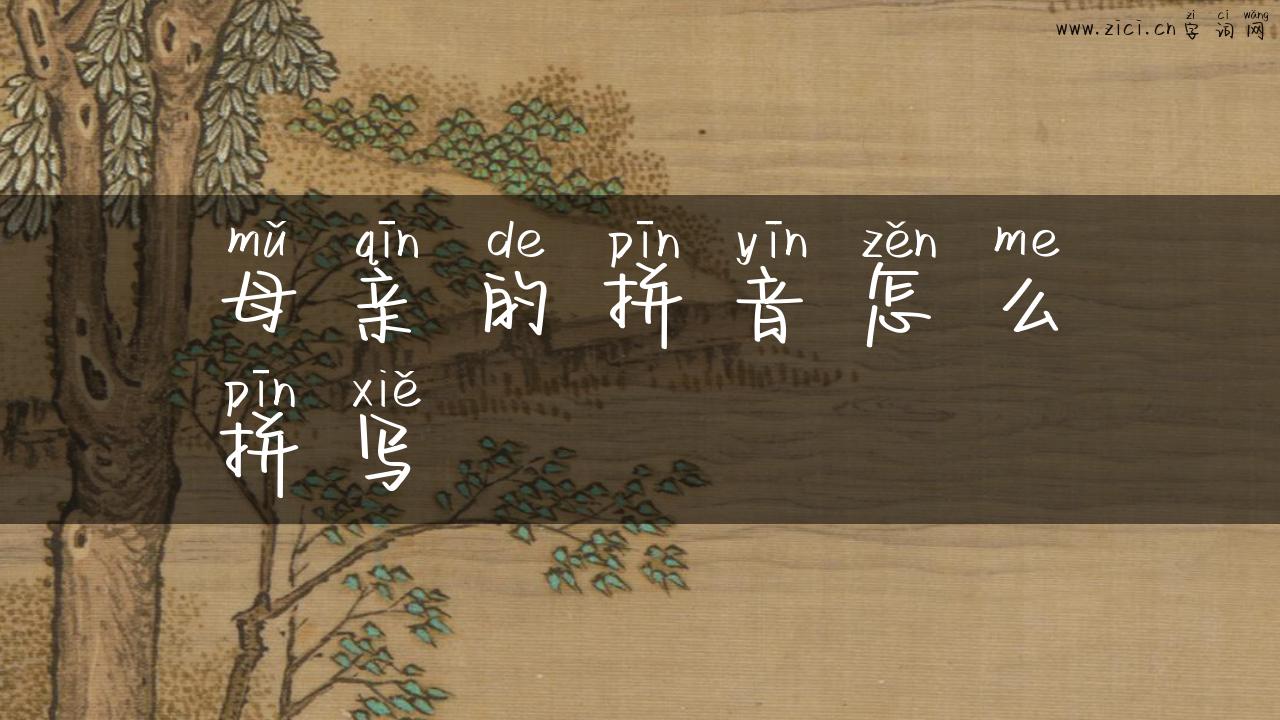 zì cí wǎng
www.zici.cn 字词网
mǔ qīn de pīn yīn zěn me
母亲的拼音怎么
pīn xiě
拼写